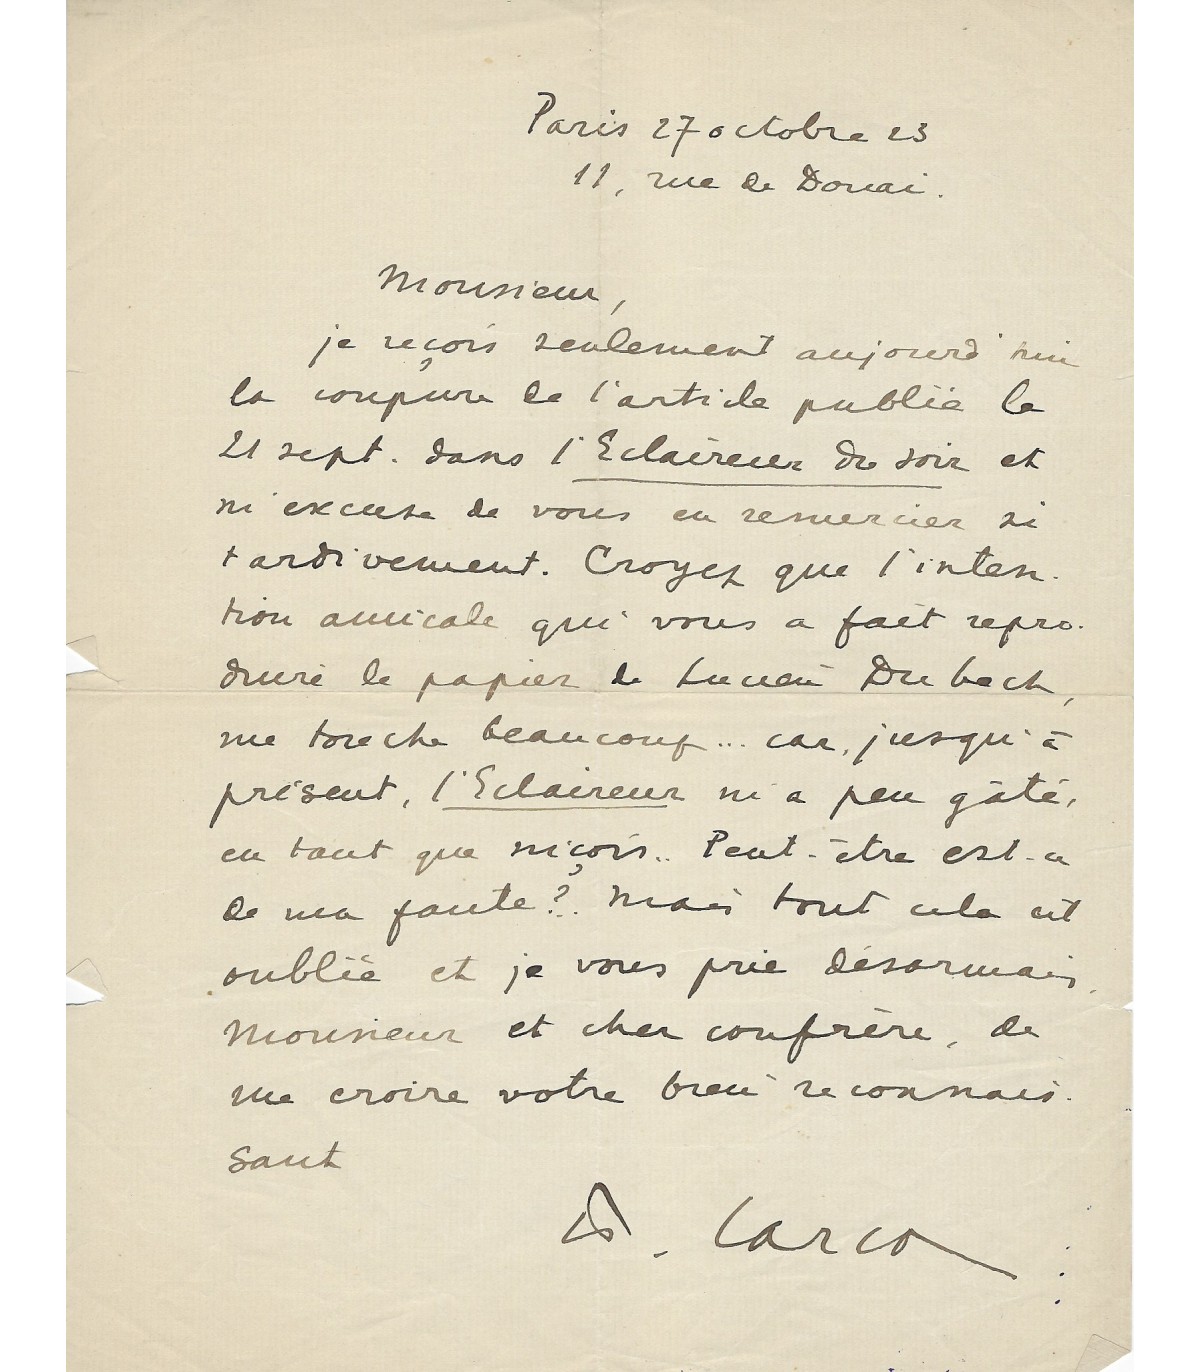 Paris 27 octobre 23
11, rue de Douai.
Monsieur,
je reçois seulement aujourd'hui
la coupure de l'article publié le
21 sept. dans l'Eclaireur du soir et
m'excuse de vous en remercier si
tardivement. Croyez que l'inten-
tion amicale qui vous a fait repro-
duire le papier de Lucien Dubech,
me touche beaucoup... car, jusqu'à
présent, l'Eclaireur m'a peu gâté,
en tant que niçois.. Peut-être est-ce
de ma faute?.. Mais tout cela est
oublié et je vous prie désormais,
Monsieur et cher confrère, de
me croire votre bien reconnais-
sant
F. Carco